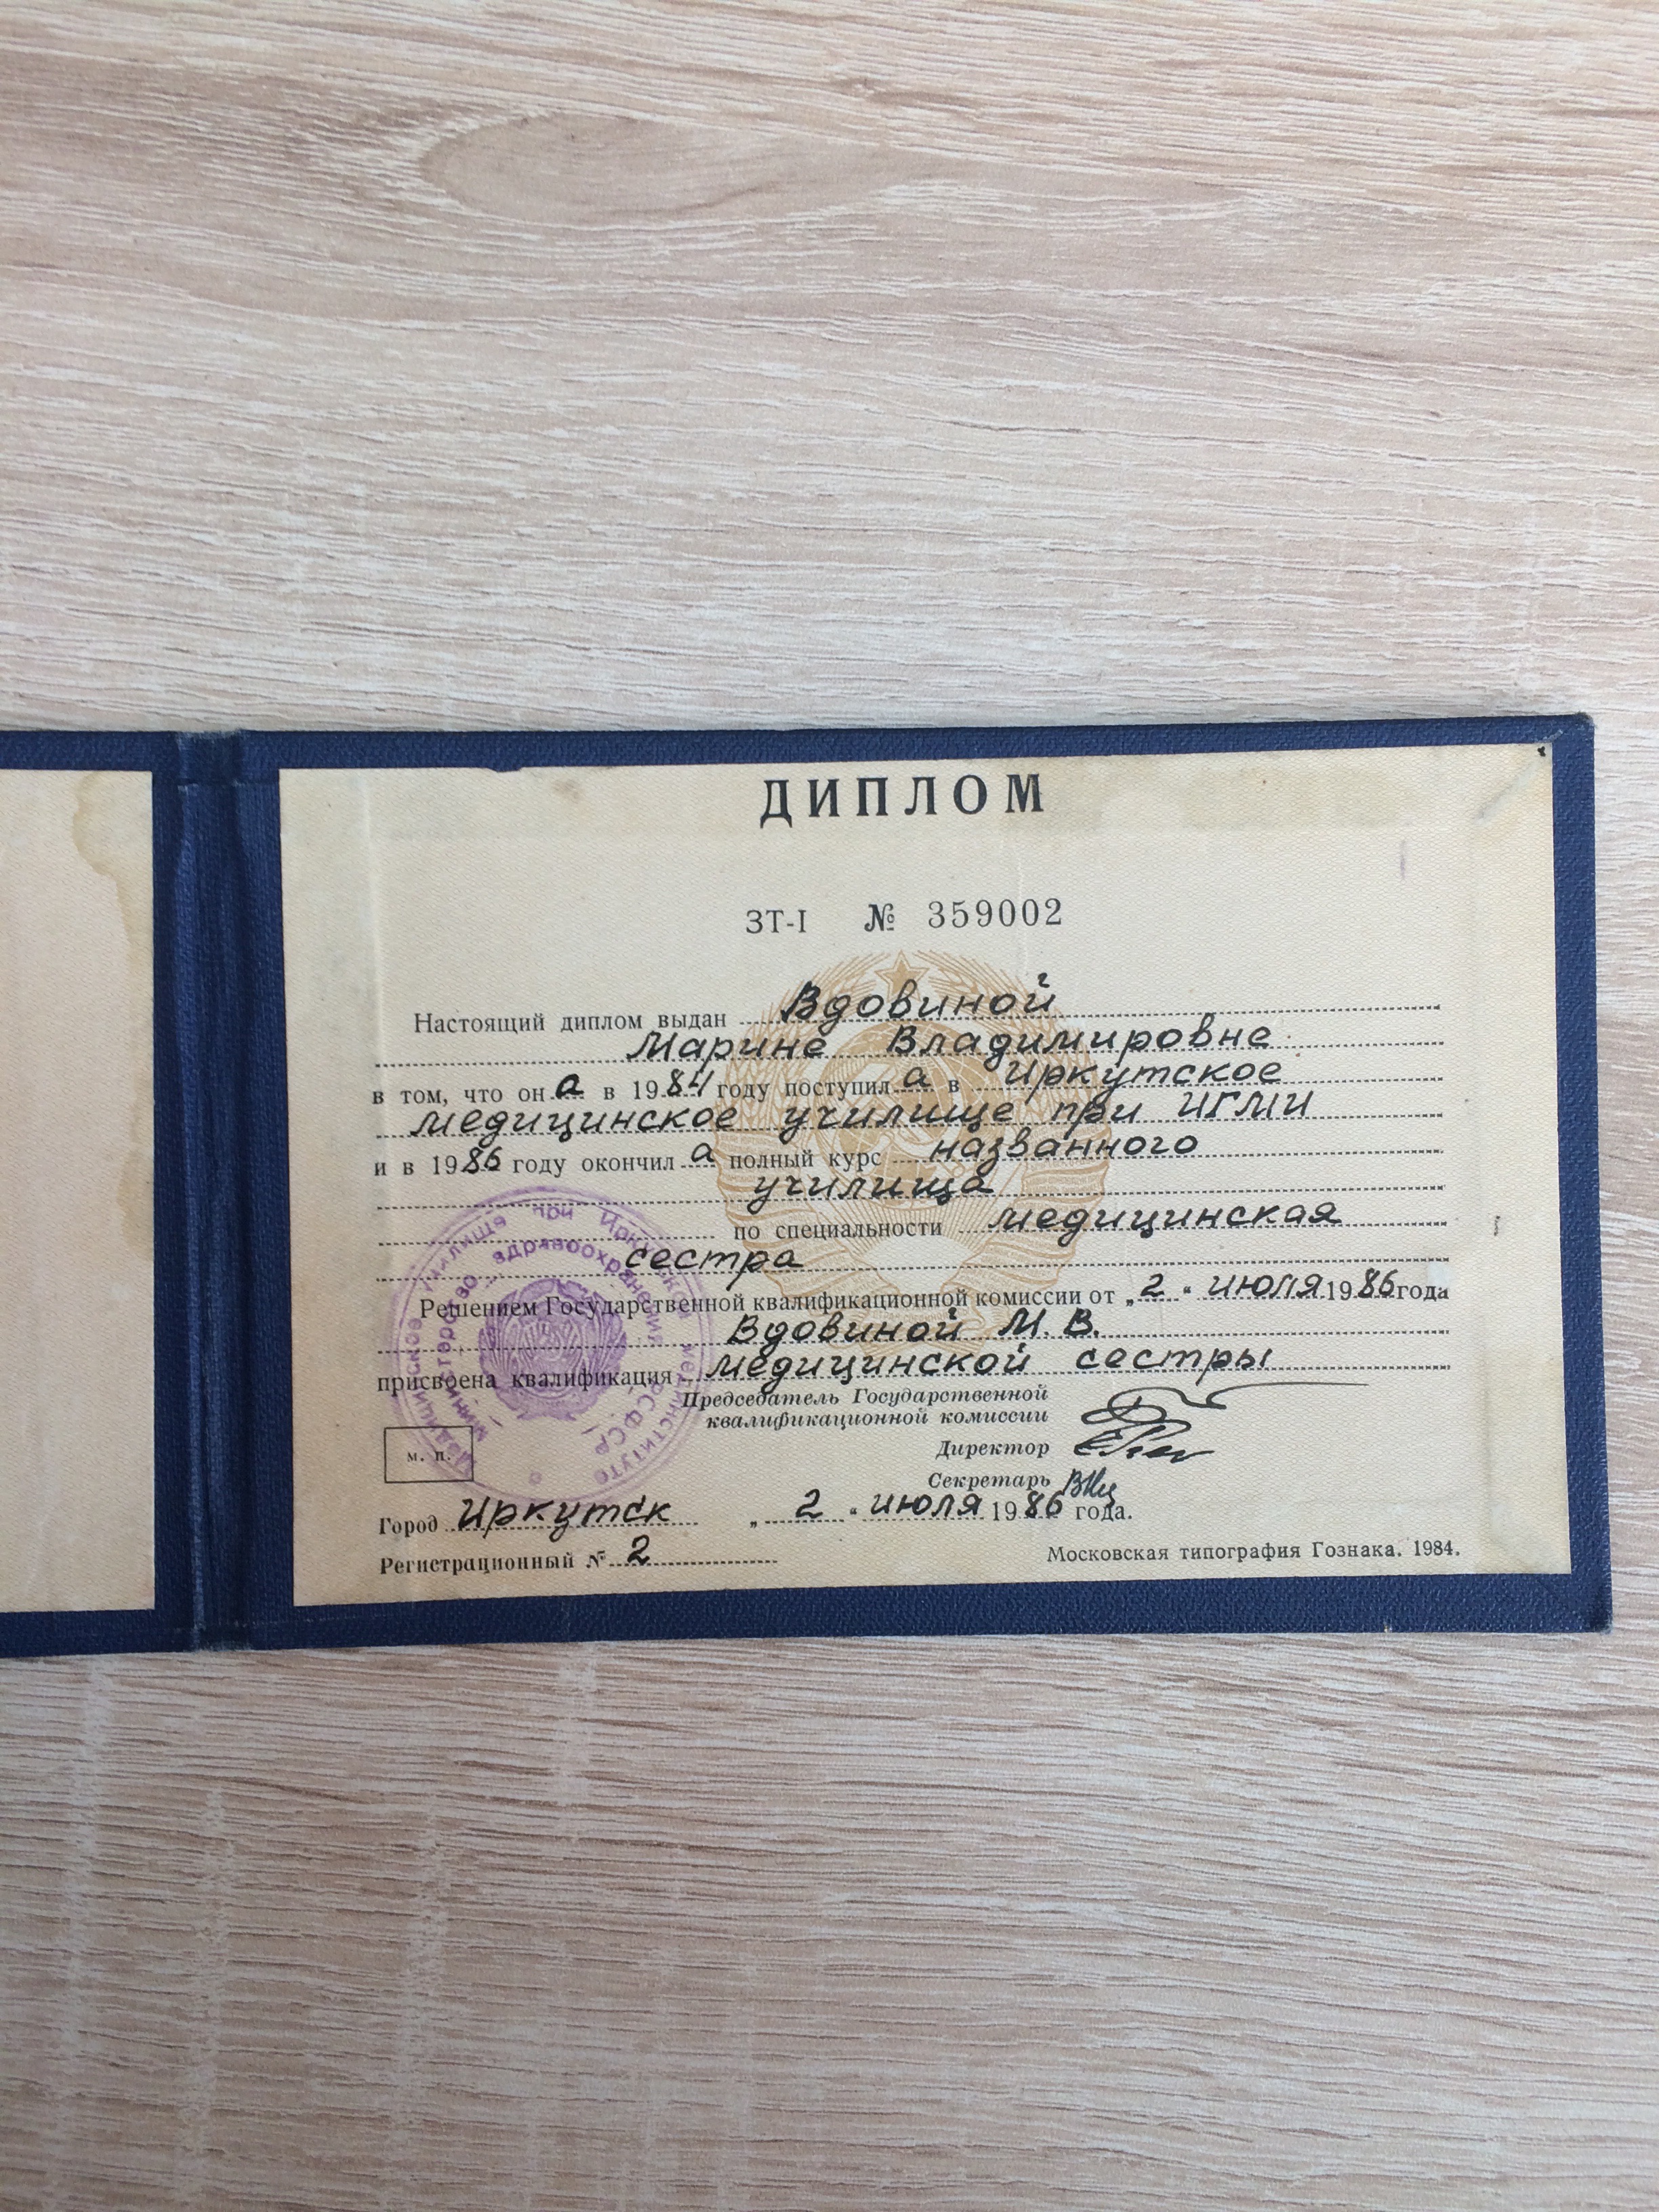 ДИПЛОМ
ЗТ-I № 359002
Настоящий диплом выдан Вдовиной
Марине Владимировне
в том, что он а в 1984 году поступил а в Иркутское
медицинское училище при ИГМИ
и в 1986 году окончил а полный курс названного
училища
по специальности медицинская
сестра
Решением Государственной квалификационной комиссии от „2“ июля 1986 года
Вдовиной М. В.
присвоена квалификация медицинской сестры
Председатель Государственной
квалификационной комиссии
Директор
Секретарь
м. п.
Город Иркутск „2“ июля 1986 года.
Регистрационный № 2
Московская типография Гознака. 1984.
Медицинское училище при Иркутском мединституте
Министерство здравоохранения РСФСР